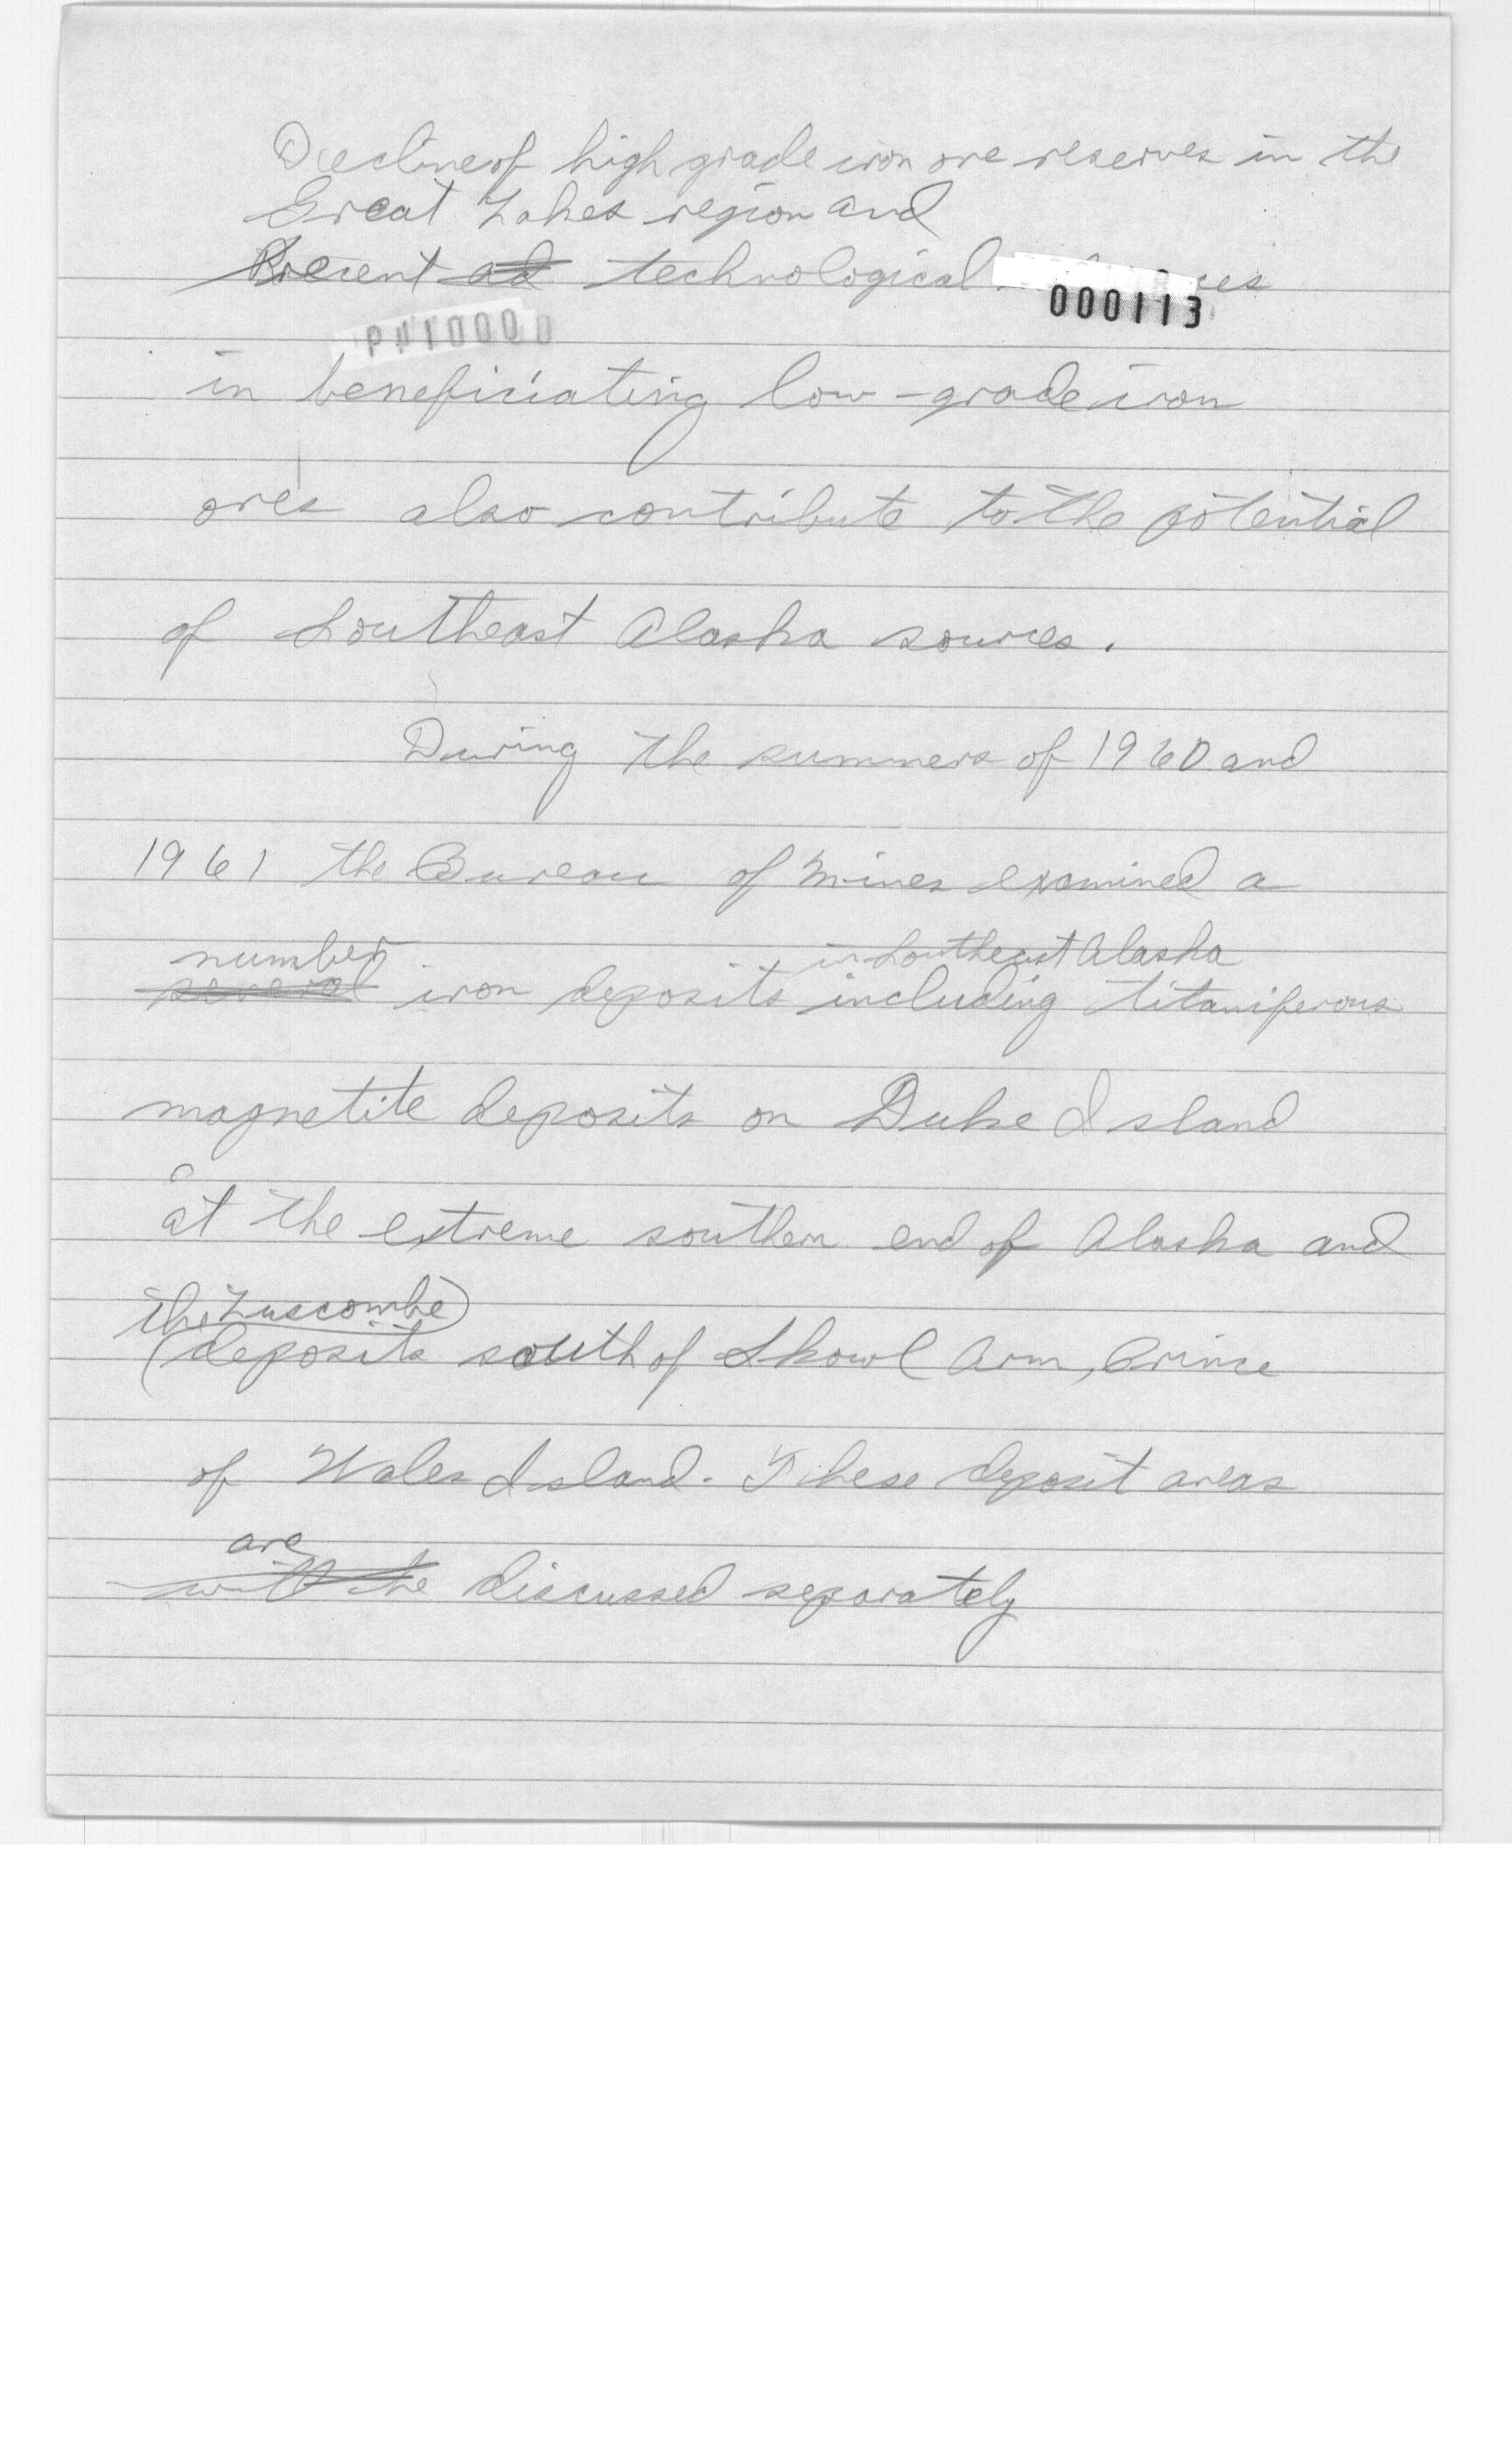 Decline of high grade iron ore reserves in the
Great Lakes region and
Recent ad technological
000113
in beneficiating low-grade iron
ores also contribute to the potential
of Southeast Alaska sources.
During the summers of 1960 and
1961 the Bureau of Mines examined a
number in Southeast Alaska
several iron deposits including titaniferous
magnetite deposits on Duke Island
at the extreme southern end of Alaska and
the Luscombe
deposits south of Skowl Arm, Prince
of Wales Island. These deposit areas
are
will be discussed separately